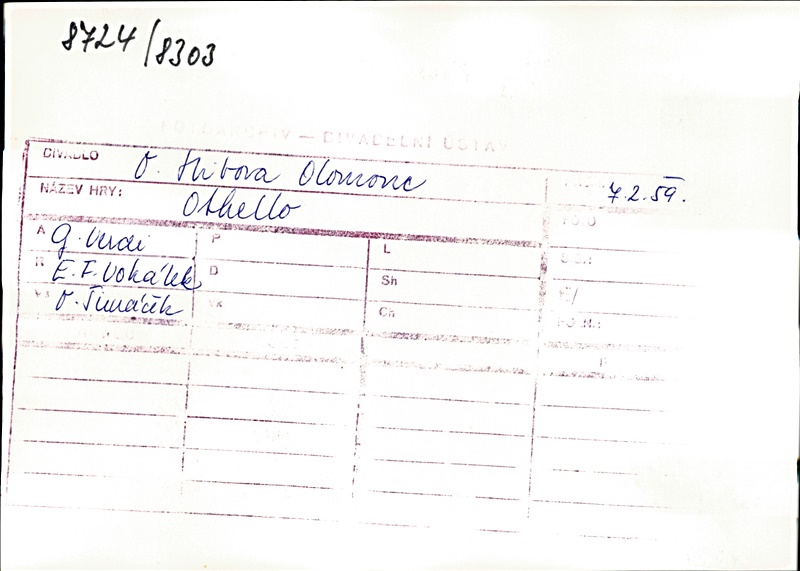 8724/8303
FOTOARCHIV — DIVADELNÍ ÚSTAV
DIVADLO O. Stibora Olomouc 7.2.59.
NÁZEV HRY: Othello
A G. Verdi P L
R E. F. Vokálek D Sh
O. Šimáček Ch